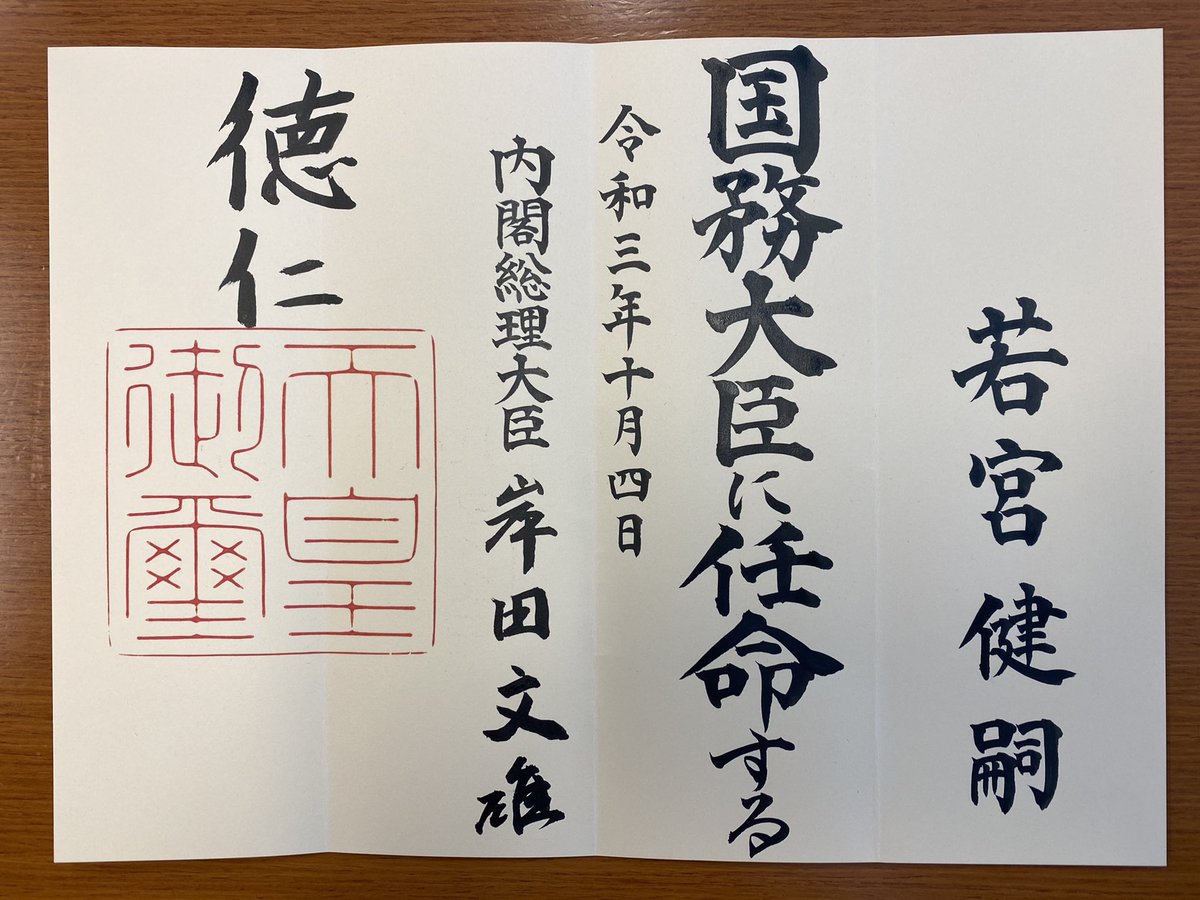 若宮健嗣
国務大臣に任命する
令和三年十月四日
内閣総理大臣 岸田文雄
徳仁
天皇
御璽